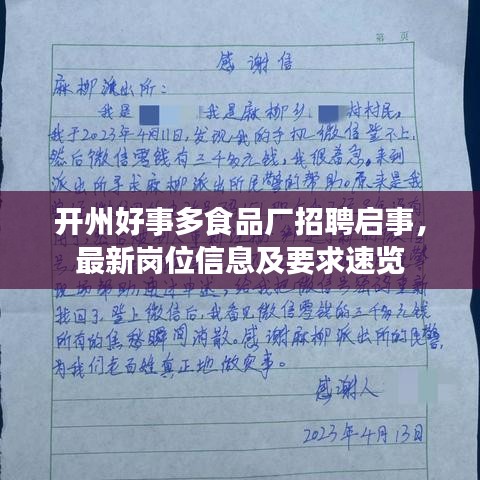 第 页
感谢信
麻柳派出所：
我是 我是麻柳乡 村村民，
我于2023年4月11日，发现我的手机微信登不上，
然后微信零钱有三千多元钱，我很着急。来到
派出所寻求麻柳派出所民警的帮助。原来是我
开州好事多食品厂招聘启事，
最新岗位信息及要求速览
找回了，登上微信后，我看见微信零钱的三千多元钱
所有的焦愁瞬间消散。感谢麻柳派出所的民警，
为我们老百姓真正地做实事。
感谢人
2023年4月13日